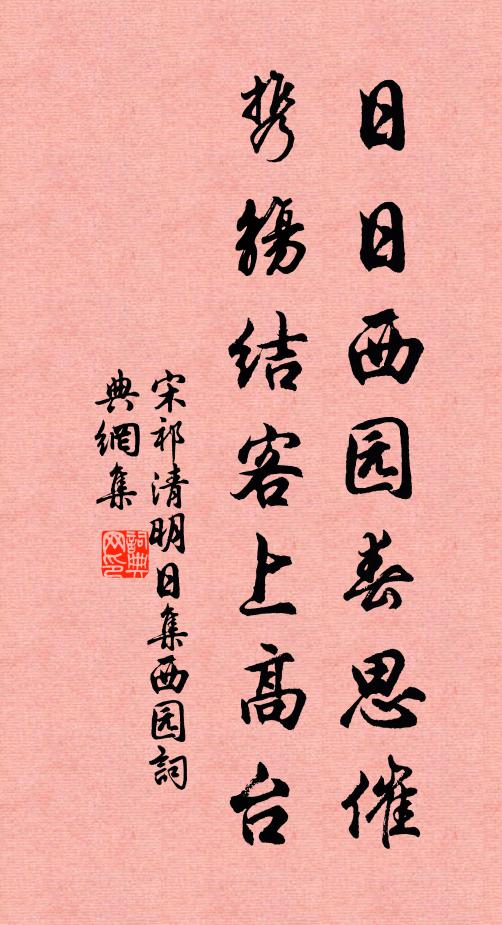 日日西园春思催
携觞结客上高台
宋祁清明日集西园詞
典網集
詞典网印